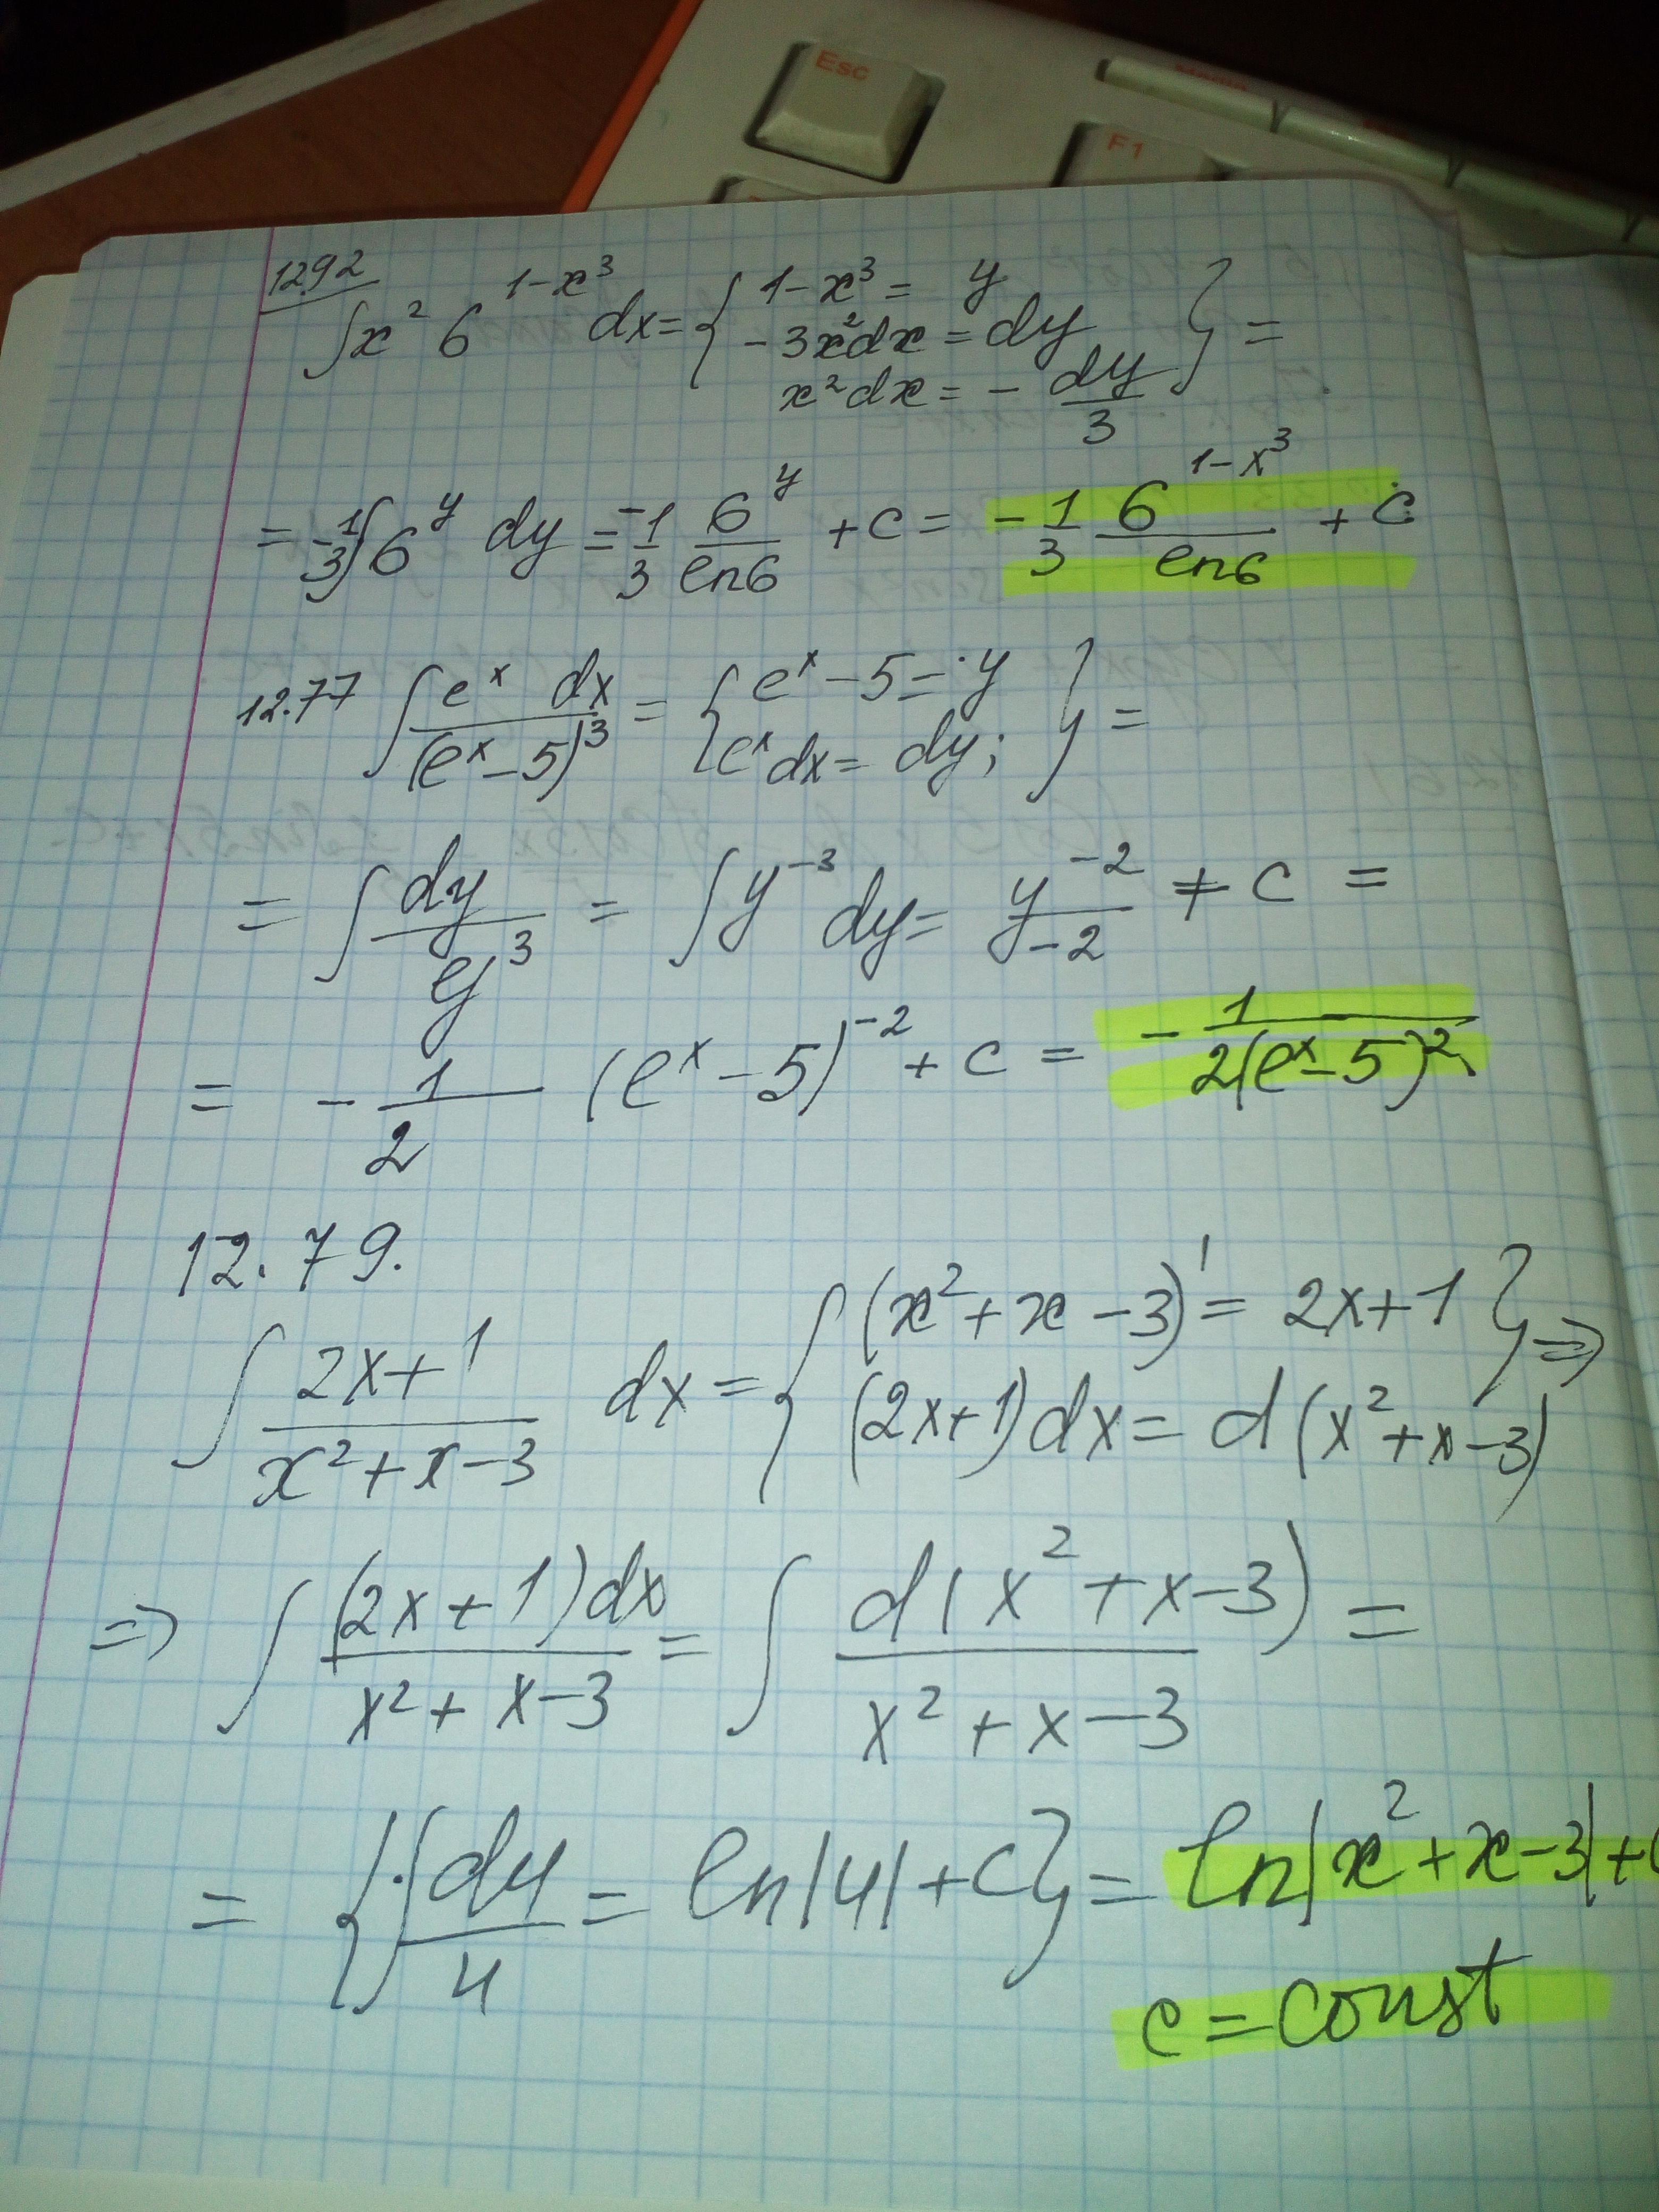 Esc
F1
12.92
∫x² 6^(1-x³) dx = { 1-x³ = y
-3x²dx = dy
x²dx = - dy/3 } =
= -1/3 ∫6^y dy = -1/3 6^y/ln6 + c = -1/3 6^(1-x³)/ln6 + c
12.77 ∫ e^x dx/(e^x-5)³ = { e^x-5 = y
e^x dx = dy; } =
= ∫ dy/y³ = ∫y^-3 dy = y^-2/-2 + c =
= -1/2 (e^x-5)^-2 + c = -1/2(e^x-5)²
12.79.
∫ 2x+1/x²+x-3 dx = { (x²+x-3)' = 2x+1
(2x+1)dx = d(x²+x-3) } ⇒
⇒ ∫ (2x+1)dx/x²+x-3 = ∫ d(x²+x-3)/x²+x-3 =
= { ∫ du/u = ln|u| + C } = ln|x²+x-3| + C
c = const